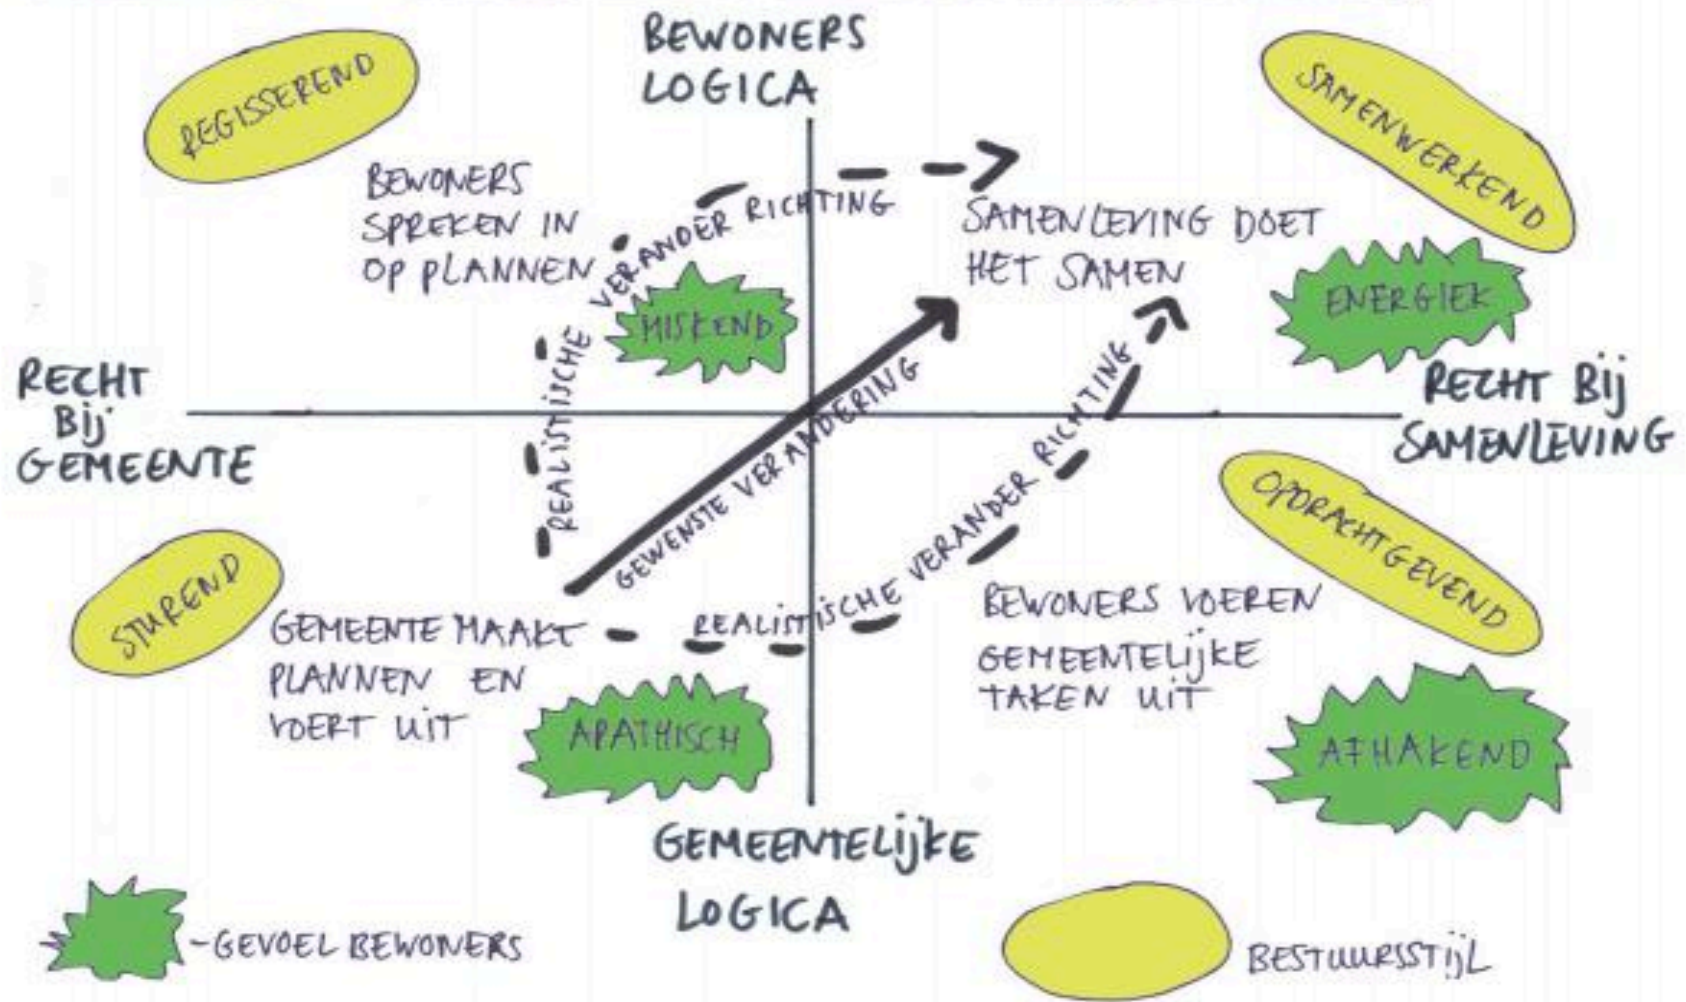 BEWONERS
LOGICA
REGISSEREND
SAMENWERKEND
BEWONERS
SPREKEN IN
OP PLANNEN
REALISTISCHE VERANDER RICHTING
SAMENLEVING DOET
HET SAMEN
MISKEND
ENERGIEK
RECHT
Bij
GEMEENTE
RECHT Bij
SAMENLEVING
GEWENSTE VERANDERING
REALISTISCHE VERANDER RICHTING
OPDRACHTGEVEND
STUREND
GEMEENTE MAAKT
PLANNEN EN
VOERT UIT
BEWONERS VOEREN
GEMEENTELIJKE
TAKEN UIT
APATHISCH
AFHAKEND
GEMEENTELIJKE
LOGICA
-GEVOEL BEWONERS
BESTUURSSTIJL